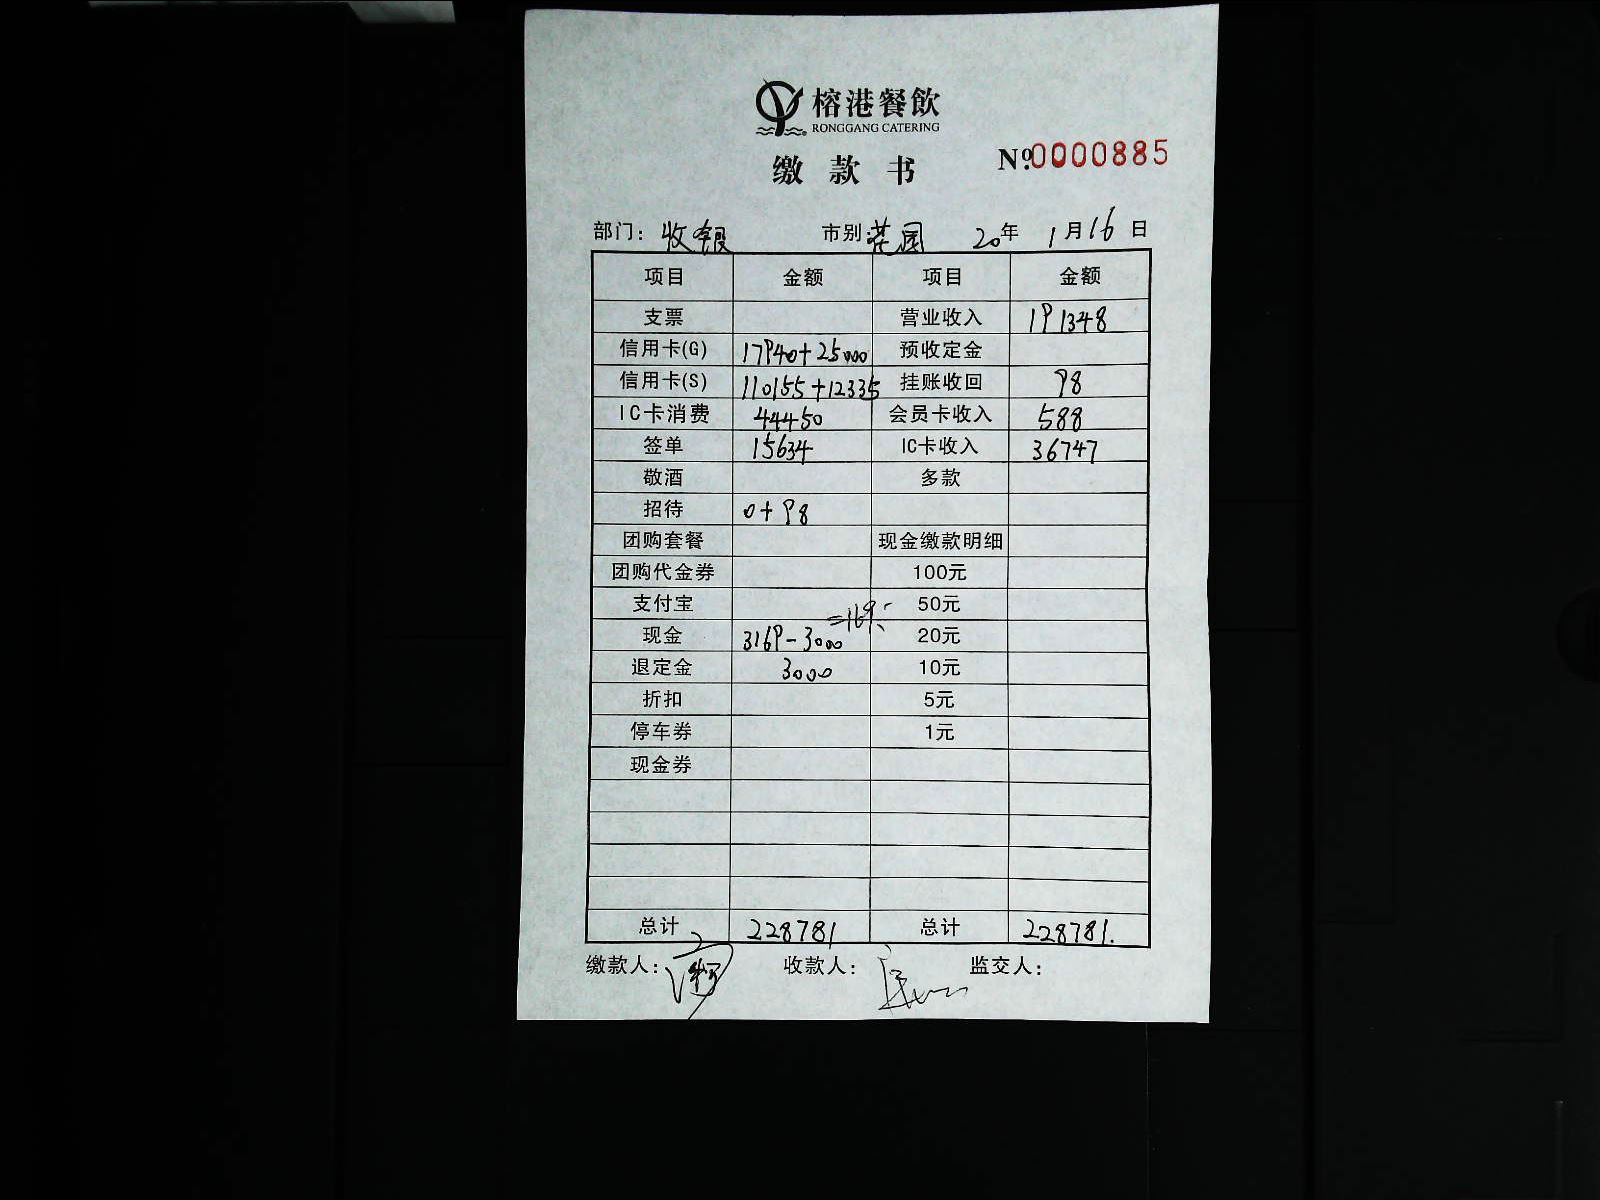 榕港餐飲
RONGGANG CATERING
缴款书 №0000885
部门: 收银 市别: 菜园 20年 1月16日
项目 金额 项目 金额
支票 营业收入 191348
信用卡(G) 17940+25000 预收定金
信用卡(S) 110155+12335 挂账收回 98
IC卡消费 44450 会员卡收入 588
签单 15634 IC卡收入 36747
敬酒 多款
招待 0+98
团购套餐 现金缴款明细
团购代金券 100元
支付宝 50元
现金 3169-3000=169 20元
退定金 3000 10元
折扣 5元
停车券 1元
现金券
总计 228781 总计 228781.
缴款人: 收款人: 监交人: